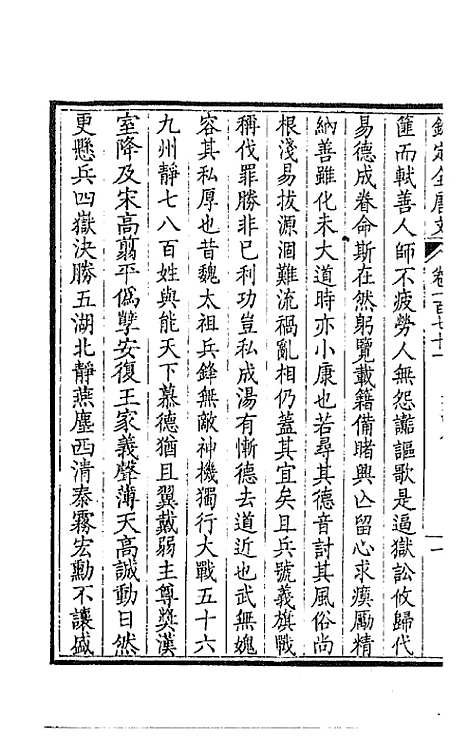 欽定全唐文　卷一百七十一
篚而軾善人師不疲勞人無怨讟謳歌是逼獄訟攸歸代
易德成眷命斯在然躬覽載籍備睹興亾留心求瘼勵精
納善雖化未大道時亦小康也若尋其德音討其風俗尚
根淺易拔源涸難流禍亂相仍蓋其宜矣且兵號義旗戰
稱伐罪勝非已利功豈私成湯有慚德去道近也武無媿
容其私厚也昔魏太祖兵鋒無敵神機獨行大戰五十六
九州靜七八百姓與能天下慕德猶且翼戴弱主尊奬漢
室降及宋高翦平僞孽安復王家義聲薄天高誠動日然
更懸兵四嶽決勝五湖北靜燕塵西清秦霧宏勳不讓盛